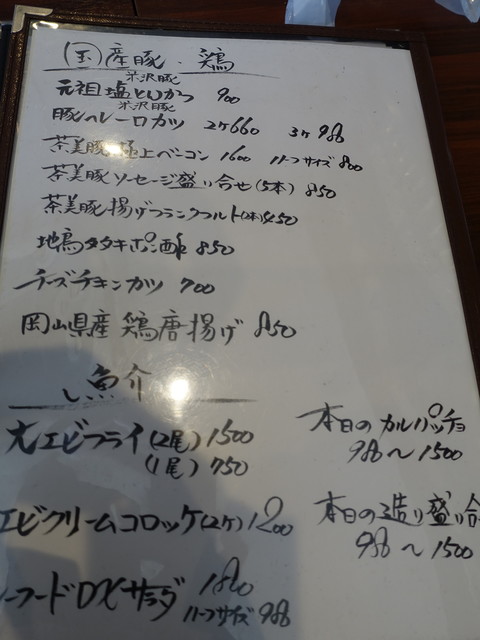 国産豚・鶏
米沢豚
元祖塩とんかつ 900
米沢豚
豚ヘレ一口カツ 2ヶ660 3ヶ980
茶美豚極上ベーコン 1600 ハーフサイズ 800
茶美豚ソーセージ盛り合せ(5本) 850
茶美豚揚げフランクフルト(2本)450
地鳥タタキポン酢 850
チーズチキンカツ 700
岡山県産 鶏唐揚げ 850
魚介
大エビフライ(2尾)1500
(1尾)750
エビクリームコロッケ(2ヶ)1200
ーフードDXサラダ 1800
ハーフサイズ 980
本日のカルパッチョ
980〜1500
本日の造り盛り合
980〜1500